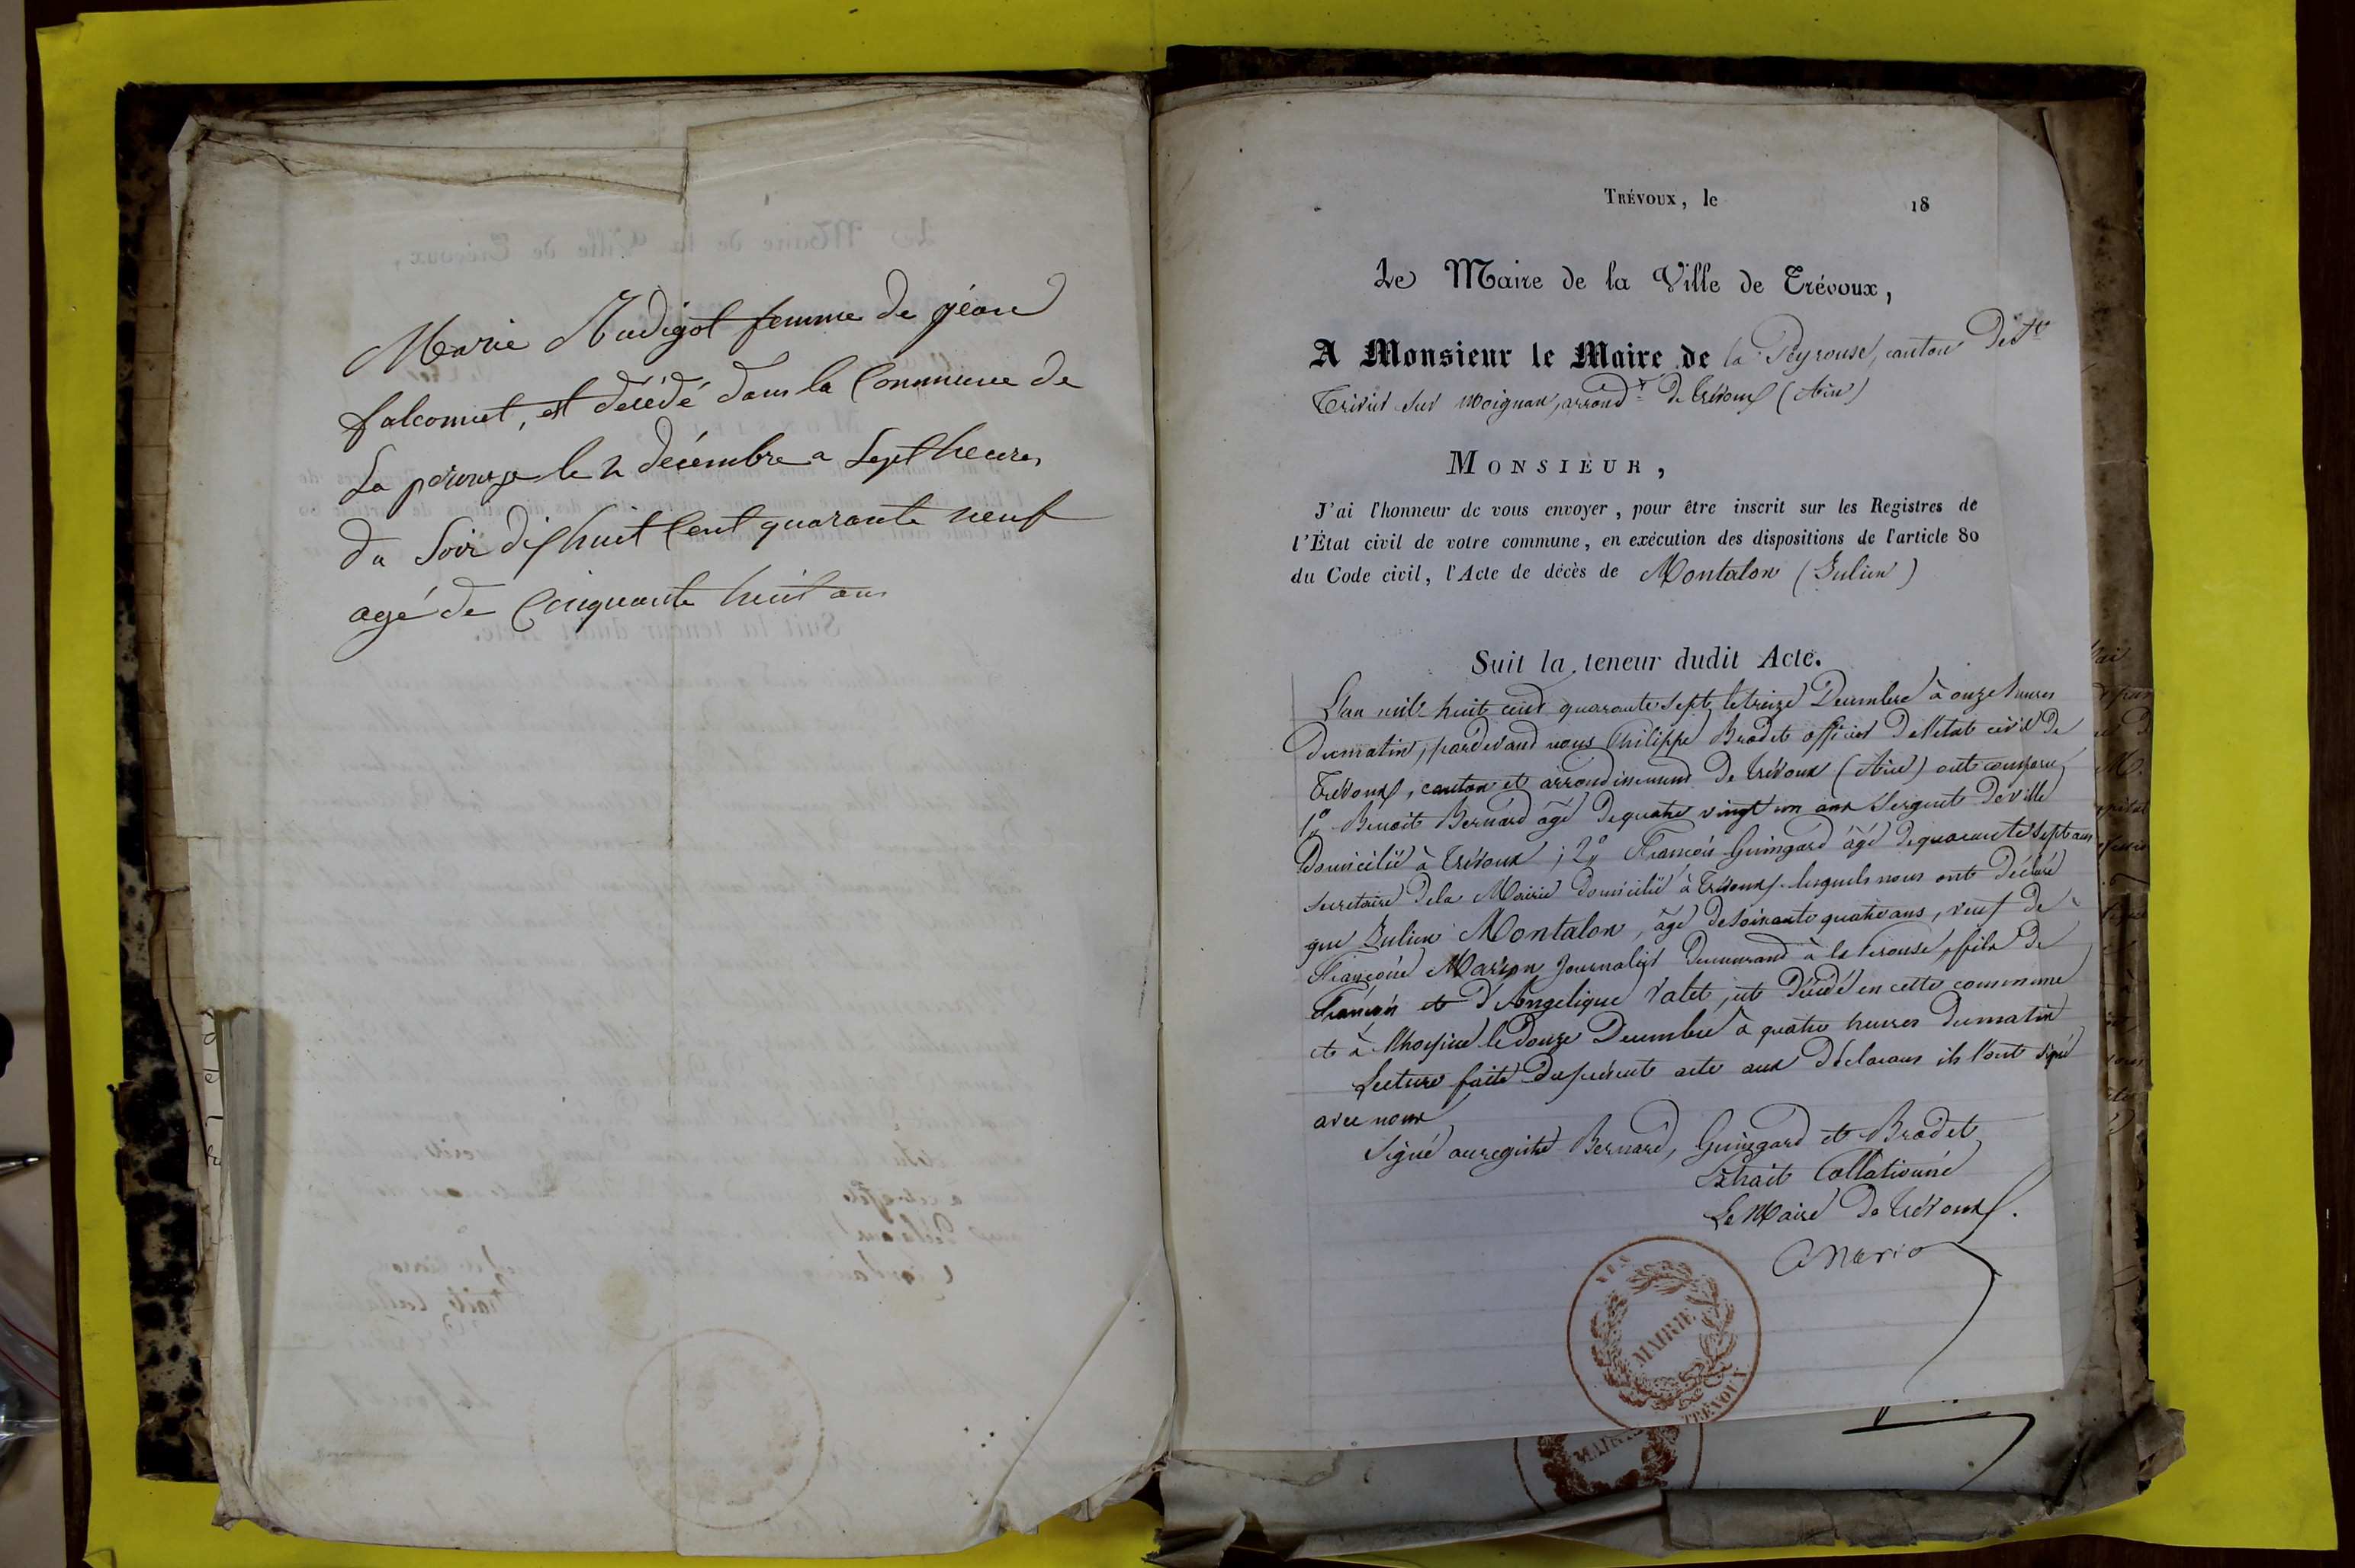 Marie Nudigot femme de jéan
falconnet, est décédé dans la Commune de
La pérouse le 2 décembre a Sept heures
du Soir dix huit Cent quarante neuf
agé de Cinquante huit ans
TRÉVOUX, le 18
Le Maire de la Ville de Trévoux,
A Monsieur le Maire de la Peyrouse, canton De St
Trivier sur Moignan, arrondt De Trévoux (Ain)
MONSIEUR,
J'ai l'honneur de vous envoyer, pour être inscrit sur les Registres de
l'État civil de votre commune, en exécution des dispositions de l'article 80
du Code civil, l'Acte de décès de Montalon (Julien)
Suit la teneur dudit Acte.
L'an mil huit cent quarante sept, le treize Décembre à onze heures
Du matin, pardevant nous Philippe Brodet officier De l'état civil De
Trévoux, canton et arrondissement De Trévoux (Ain) ont comparu
1° Benoit Bernard âgé De quatre vingt un ans Sergent De ville
Domicilié à Trévoux ; 2° François Guingard âgé De quarante sept ans
secretaire De la Mairie Domicilié à Trévoux lesquels nous ont Déclaré
que Julien Montalon, âgé De soixante quatre ans, veuf De
Françoise Marion Journalier Demeurand à la Perouse, fils De
François et D'Angelique Valet, est Décédé en cette commune
et à l'hospice le Douze Décembre à quatre heures Du matin
Lecture faite Du présent acte aux Déclarans ils l'ont signé
avec nous
Signé au registre Bernard, Guingard et Brodet
Extrait Collationné
Le Maire De Trévoux.
MAIRIE
TRÉVOUX
MAIRIE